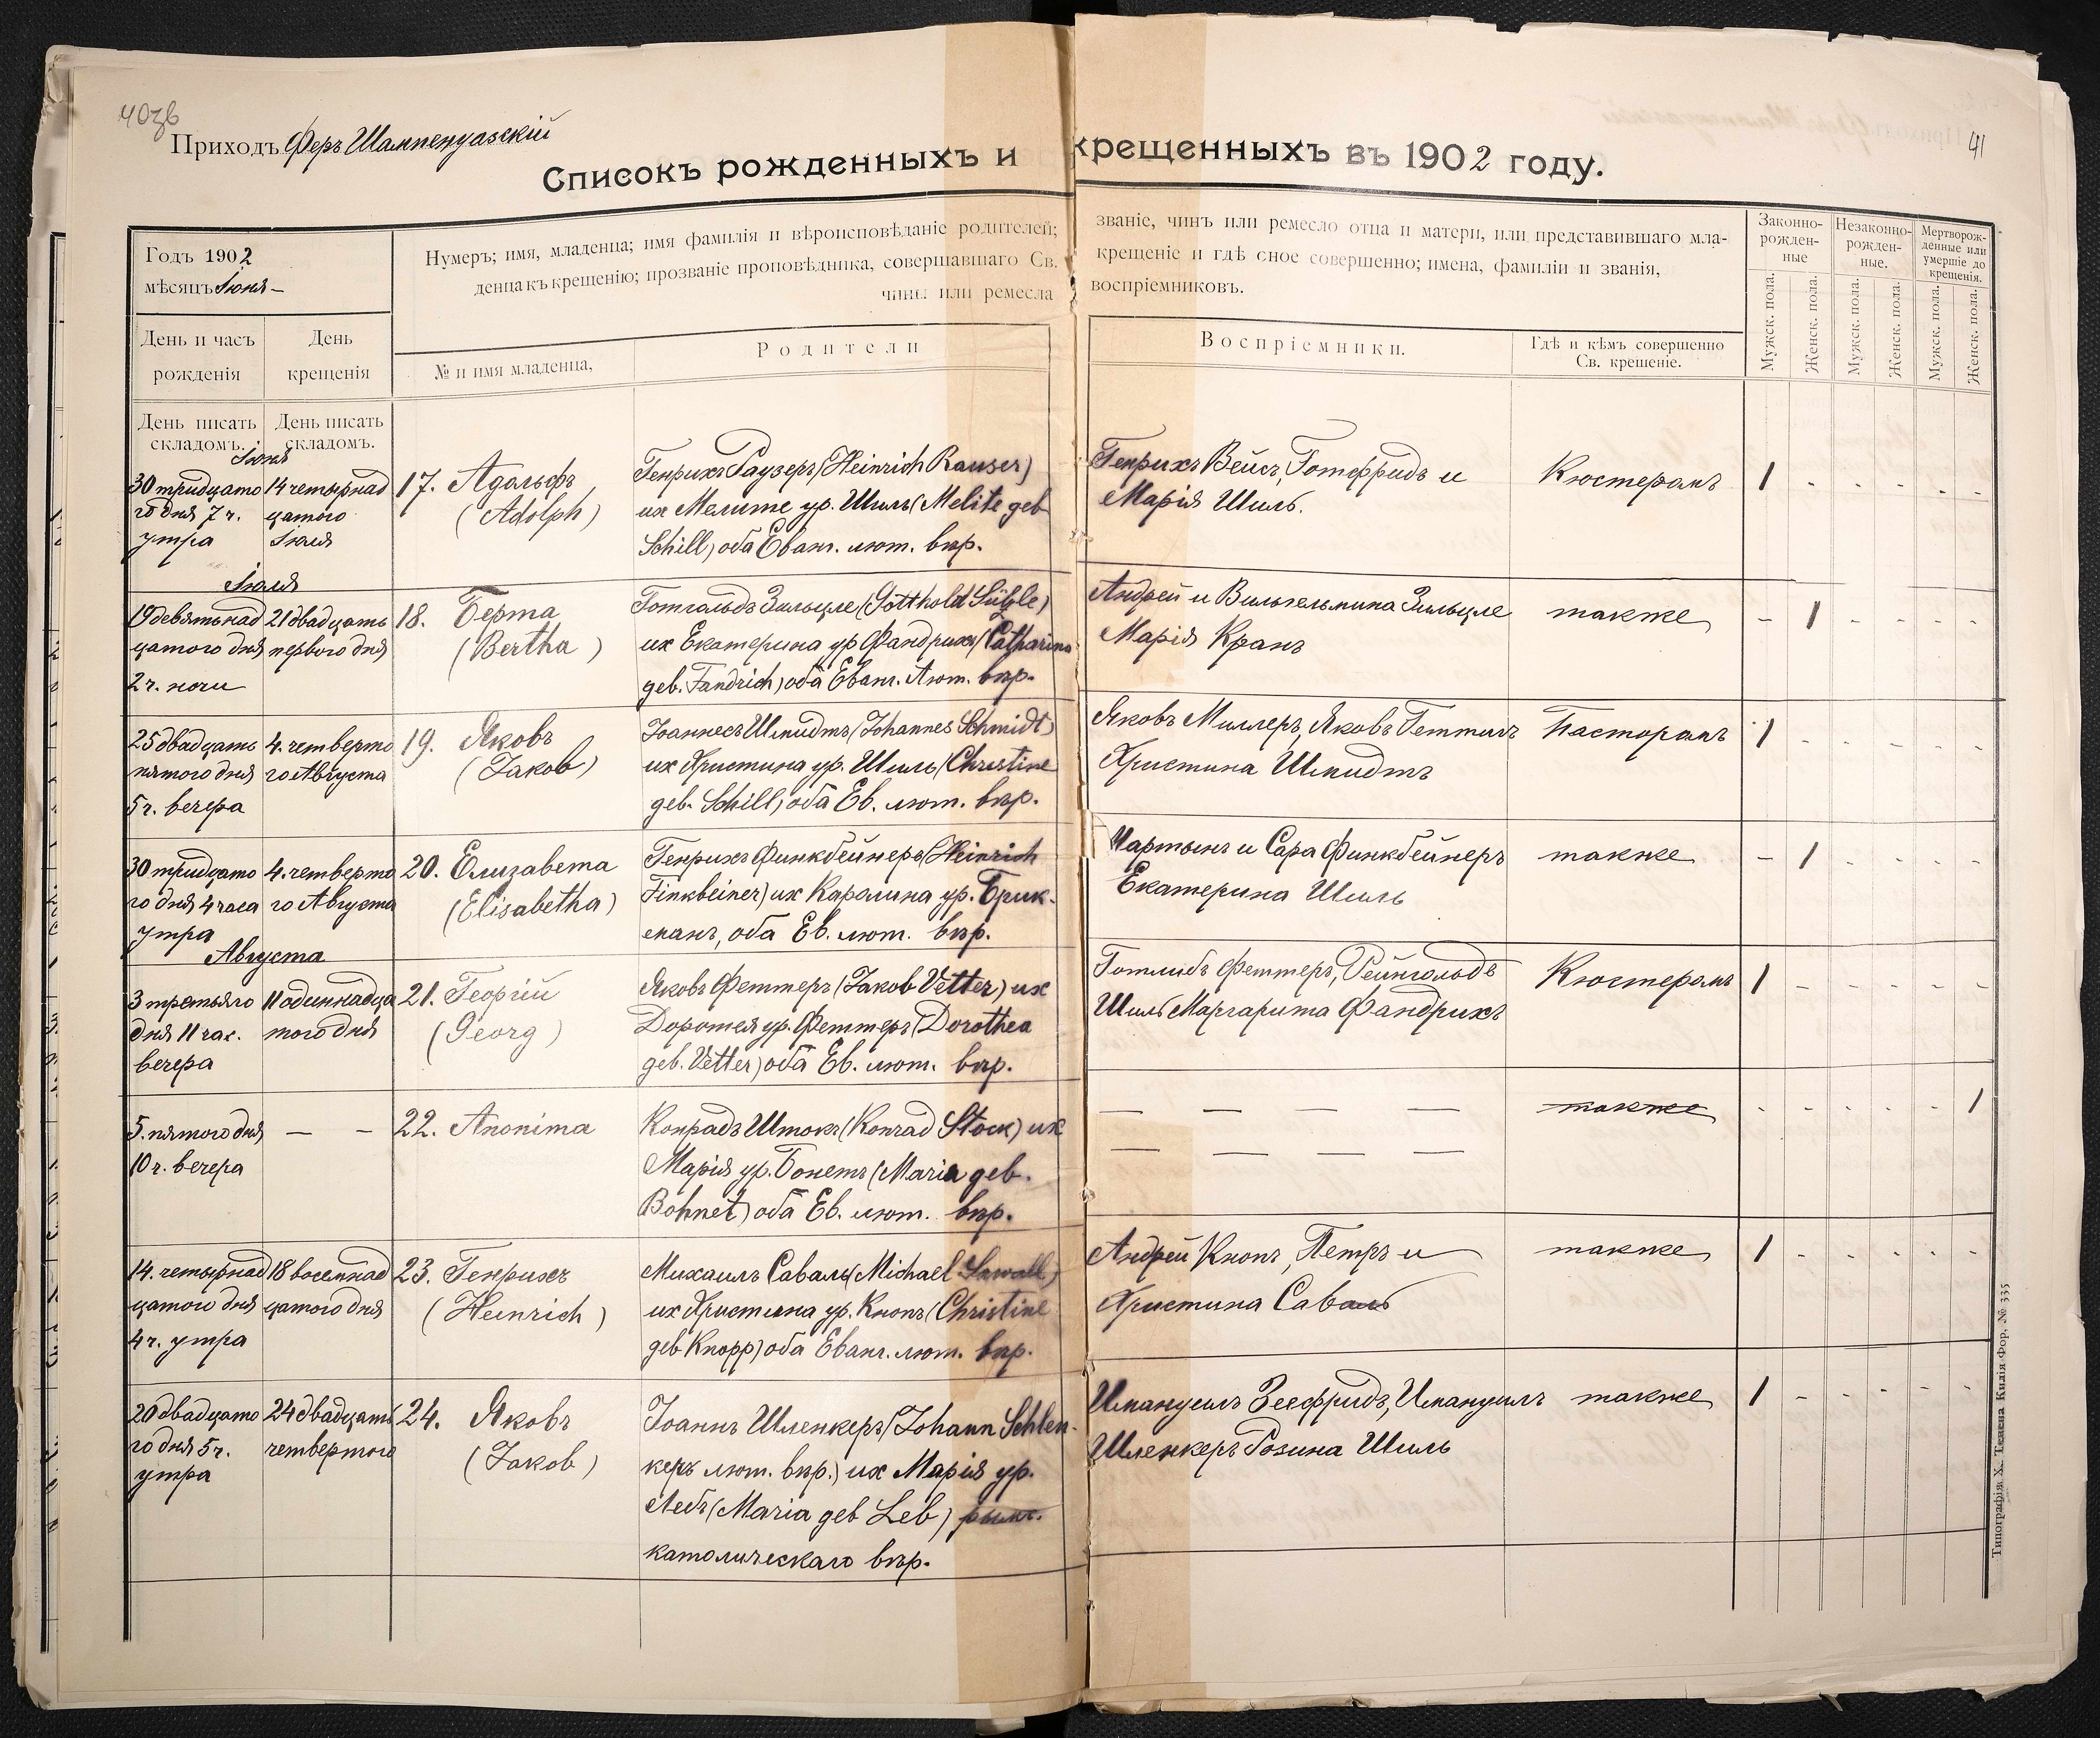 40зв
41
Приходъ Феръ Шампенуазскій
Списокъ рожденныхъ и крещенныхъ въ 1902 году.
Годъ 1902
мѣсяцъ Іюня –
Нумеръ; имя, младенца; имя фамилія и вѣроисповѣданіе родителей; званіе, чинъ или ремесло отца и матери, или представившаго мла-
денца къ крещенію; прозваніе проповѣдника, совершавшаго Св. крещеніе и гдѣ оное совершенно; имена, фамиліи и званія,
чины или ремесла воспріемниковъ.
Законно-
рожден-
ные
Незаконно-
рожден-
ные.
Мертворож-
денные или
умершіе до
крещенія.
День и часъ
рожденія
День
крещенія
№ и имя младенца,
Родители
Воспріемники.
Гдѣ и кѣмъ совершенно
Св. крешеніе.
Мужск. пола.
Женск. пола.
Мужск. пола.
Женск. пола.
Мужск. пола.
Женск. пола.
День писать
складомъ.
День писать
складомъ.
Іюня
30 тридцато
го дня 7 ч.
утра
14 четырнад
цатого
Іюля
17. Адольфъ
(Adolph)
Генрихъ Раузеръ (Heinrich Rauser)
их Мелите ур. Шиль (Melite geb
Schill) оба Еванг. лют. вѣр.
Генрихъ Вейсъ, Готфридъ и
Марія Шиль.
Кюстеромъ
1 - - - - -
Іюля
19 девятьнад
цатого дня
2 ч. ночи
21 двадцать
первого дня
18. Берта
(Bertha)
Готгольдъ Зильцле (Gotthold Sülzle)
их Екатерина ур Фандрихъ (Catharina
geb. Fandrich) оба Еванг. Лют. вѣр.
Андрей и Вильгельмина Зильцле
Марія Кранъ
также
- 1 - - - -
25 двадцать
пятого дня
5 ч. вечера
4. четверто
го Августа
19. Яковъ
(Jakob)
Іоаннесъ Шмидтъ (Johannes Schmidt)
их Христина ур. Шиль (Christine
geb. Schill) оба Ев. лют. вѣр.
Яковъ Миллеръ, Яковъ Геттихъ
Христина Шмидтъ
Пасторомъ
1 - - - - -
30 тридцато
го дня 4 часа
утра
4. четверто
го Августа
20. Елизавета
(Elisabetha)
Генрихъ Финкбейнеръ (Heinrich
Finkbeiner) их Каролина ур. Брик-
манъ, оба Ев. лют. вѣр.
Мартынъ и Сара Финкбейнеръ
Екатерина Шиль
также
- 1 - - - -
Августа
3 третьяго
дня 11 час.
вечера
11 одиннадца
того дня
21. Георгій
(Georg)
Яковъ Феттеръ (Jakob Vetter) их
Доротея ур. Феттеръ (Dorothea
geb. Vetter) оба Ев. лют. вѣр.
Готлибъ Феттеръ, Рейнгольдъ
Шиль Маргарита Фандрихъ
Кюстеромъ
1 - - - - -
5. пятого дня
10 ч. вечера
— —
22. Anonima
Конрадъ Штокъ (Konrad Stock) их
Марія ур. Бонетъ (Maria geb.
Bohnet) оба Ев. лют. вѣр.
— — — —
— — — —
также
- - - - - 1
14. четырнад
цатого дня
4 ч. утра
18 восемнад
цатого дня
23. Генрихъ
(Heinrich)
Михаилъ Саваль (Michael Sawall)
их Христина ур. Кнопъ (Christine
geb Knopp) оба Еванг. лют. вѣр.
Андрей Кнопъ, Петръ и
Христина Саваль
также
1 - - - - -
20 двадцато
го дня 5 ч.
утра
24 двадцать
четвертого
24. Яковъ
(Jakob)
Іоаннъ Шленкеръ (Johann Schlen-
керъ лют. вѣр.) их Марія ур.
Лебъ (Maria geb Leb) рымс.
католическаго вѣр.
Имануилъ Зеефридъ, Имануилъ
Шленкеръ Розина Шиль
также
1 - - - - -
Типографія Х. Тенена Килія Фор. № 335